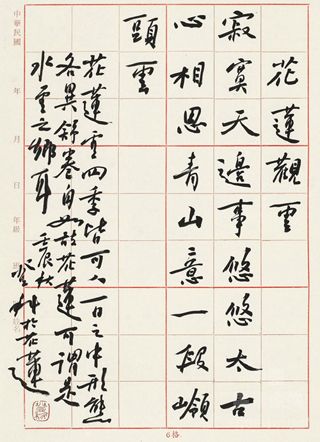 花蓮觀雲
寂寞天邊事悠悠太古
心相思青山意一段嶺
頭雲
花蓮雲四季皆可人一日之中形態
各異舒卷自如故花蓮可謂是
水雲之鄉耳 壬辰秋
於花蓮
中華民國 年 月 日 年級
6格